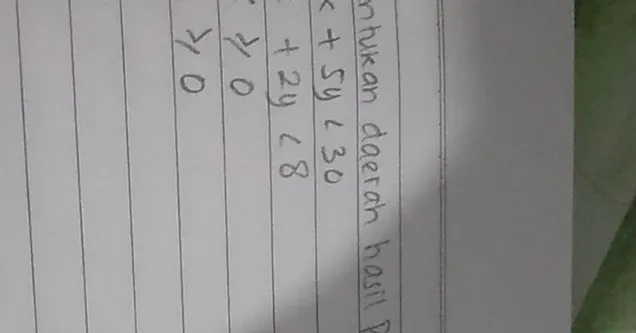 ntukan daerah hasil
x + 5y < 30
+ 2y < 8
≥ 0
≥ 0